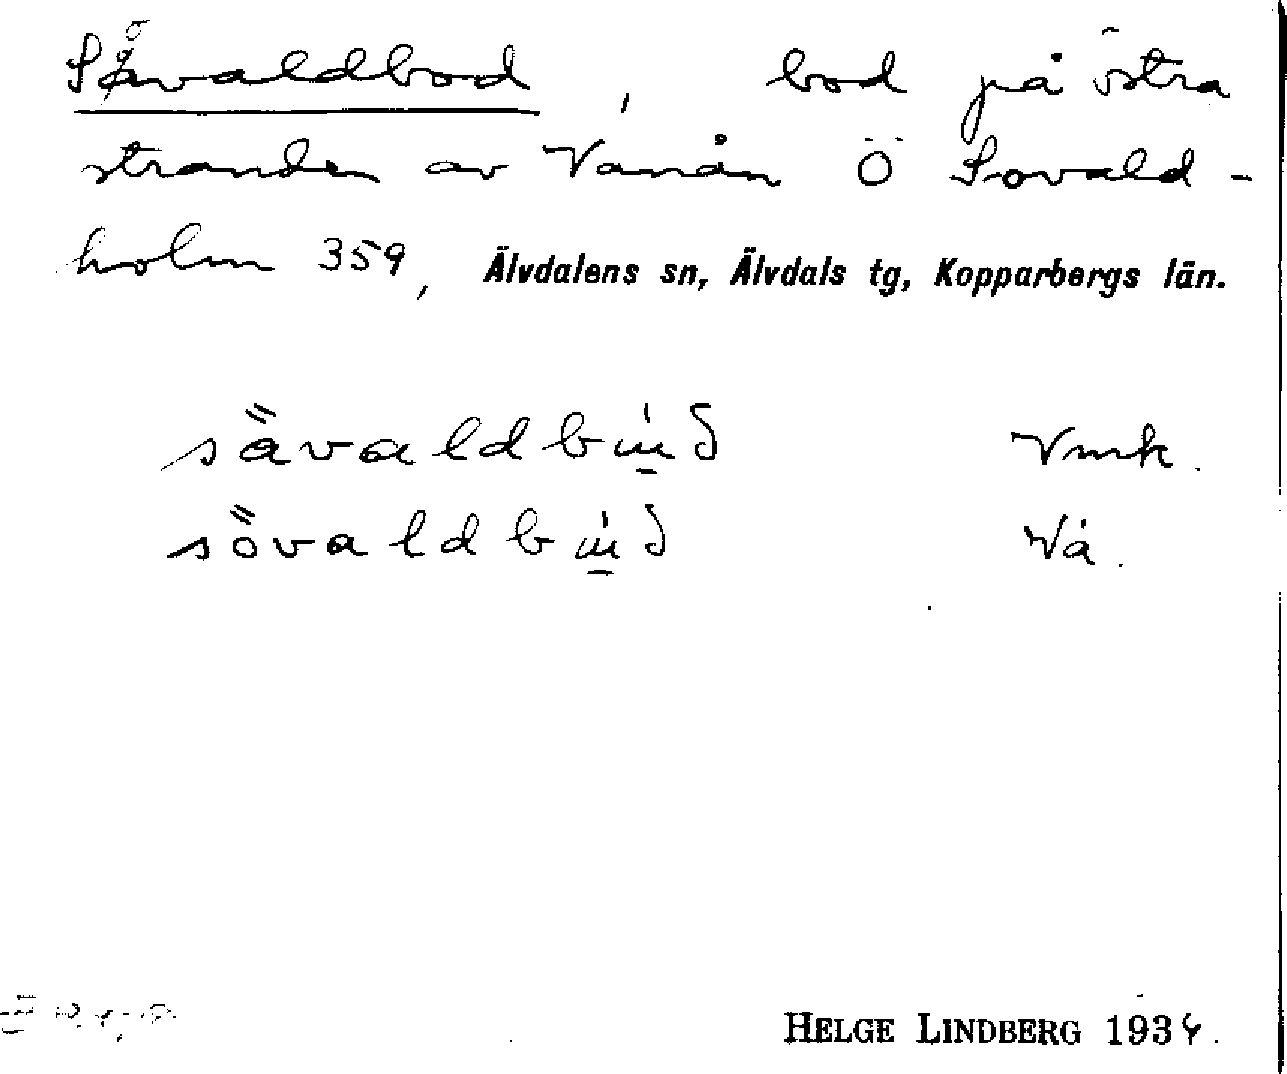 Såvaldbod, bod på östra
stranden av Vanån Ö Sovald-
holm 359, Älvdalens sn, Älvdals tg, Kopparbergs län.
sävaldbɯd Vmk.
sövaldbɯd Vå.
HELGE LINDBERG 1934.